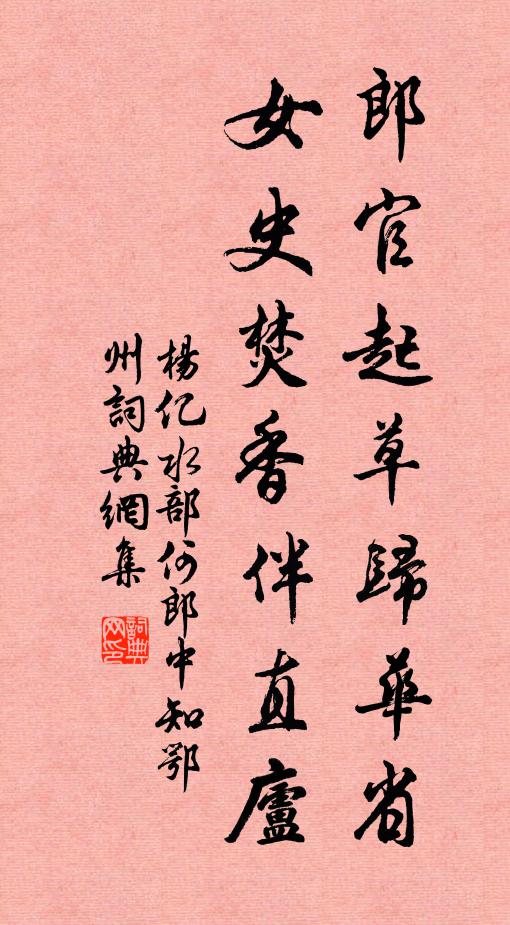 郎官起草歸華省
女史焚香伴直廬
楊亿水部何郎中知鄂
州詞典網集
詞典
网印